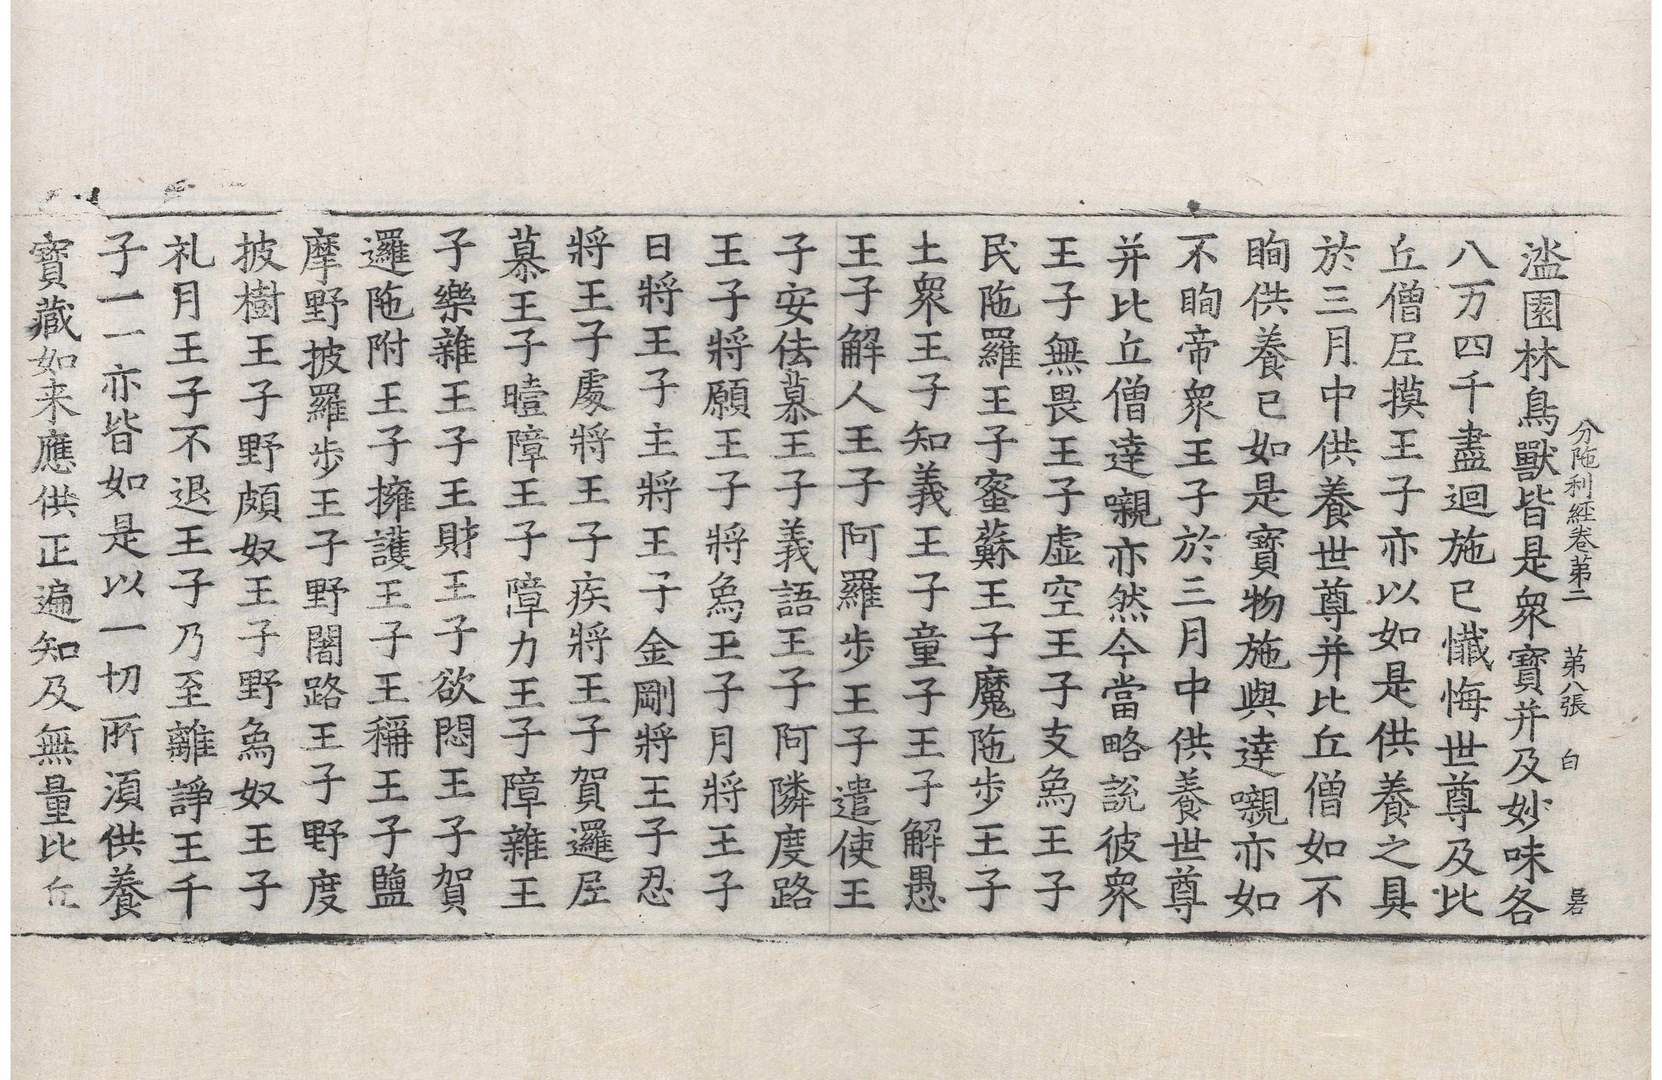 分陁利經卷苐二　苐八張　白
溢園林鳥獸皆是衆寶并及妙味各
八万四千盡迴施已懺悔世尊及比
丘僧𡰱摸王子亦以如是供養之具
於三月中供養世尊并比丘僧如不
眴供養已如是寶物施與達嚫亦如
不眴帝衆王子於三月中供養世尊
并比丘僧達嚫亦然今當略說彼衆
王子無畏王子虛空王子支烏王子
民陁羅王子蜜蘇王子魔陁步王子
土衆王子知義王子童子王子解愚
王子解人王子阿羅步王子遣使王
子安佉慕王子義語王子阿隣度路
王子將願王子將烏王子月將王子
日將王子主將王子金剛將王子忍
將王子處將王子疾將王子賀邏𡰱
慕王子曀障王子障力王子障雜王
子樂雜王子王財王子欲悶王子賀
邏陁附王子擁護王子王稱王子鹽
摩野披羅步王子野闇路王子野度
披樹王子野頗奴王子野烏奴王子
礼月王子不退王子乃至離諍王千
子一一亦皆如是以一切所湏供養
寶藏如来應供正遍知及無量比丘